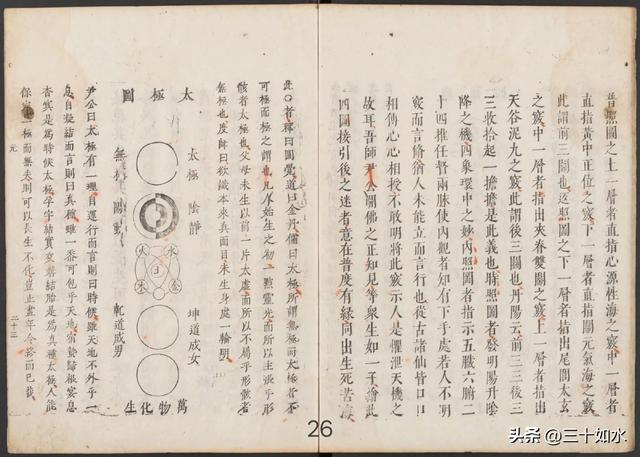 普照圖之上一層者直指心源性海之竅中一層者
直指黄中正位之竅下一層者直指關元氣海之竅
此謂前三關也返照圖之下一層者指出尾閭太玄
之竅中一層者指出夾脊雙關之竅上一層者指出
天谷泥九之竅此謂後三關也丹陽云前三三後三
三收拾起一擔擔是此義也時照圖者發明陽升陰
降之機四象環中之妙内照圖者指示五臟六腑二
十四椎任督兩脉使内觀者知有下手處若人不明
竅而言脩猶人未能立而言行也從古諸仙皆口口
相傳心心相授不敢明將此竅示人是懼泄天機之
故耳吾師尹公開佛之正知見等衆生如一子繪此
四圖接引後之迷者意在普度有緣同出生死苦海
此〇者釋曰圓覺道曰金丹儒曰太極所謂無極而太極者不
可極而極之謂也凡人始生之初一點靈光而所以主張乎形
骸者太極也父母未生以前一片太虛而所以不屬乎形骸者
無極也度師曰欲識本來真面目未生身處一輪明
太極圖
太極
陰靜
坤道成女
火
水
土
木
金
無極
陽動
乾道成男
萬物化生
尹公曰太極有一理自運行而言則曰時候雖天地不外乎一
息自凝結而言則曰真種雖一黍可包乎天地宿蟄歸根冥息
杳冥是爲時候太極孕字結實結胎是爲真種太極人能
保完二極而無失則可以長生不化豈止盡年令終而已哉
元
二十三
26
头条 @三十如水